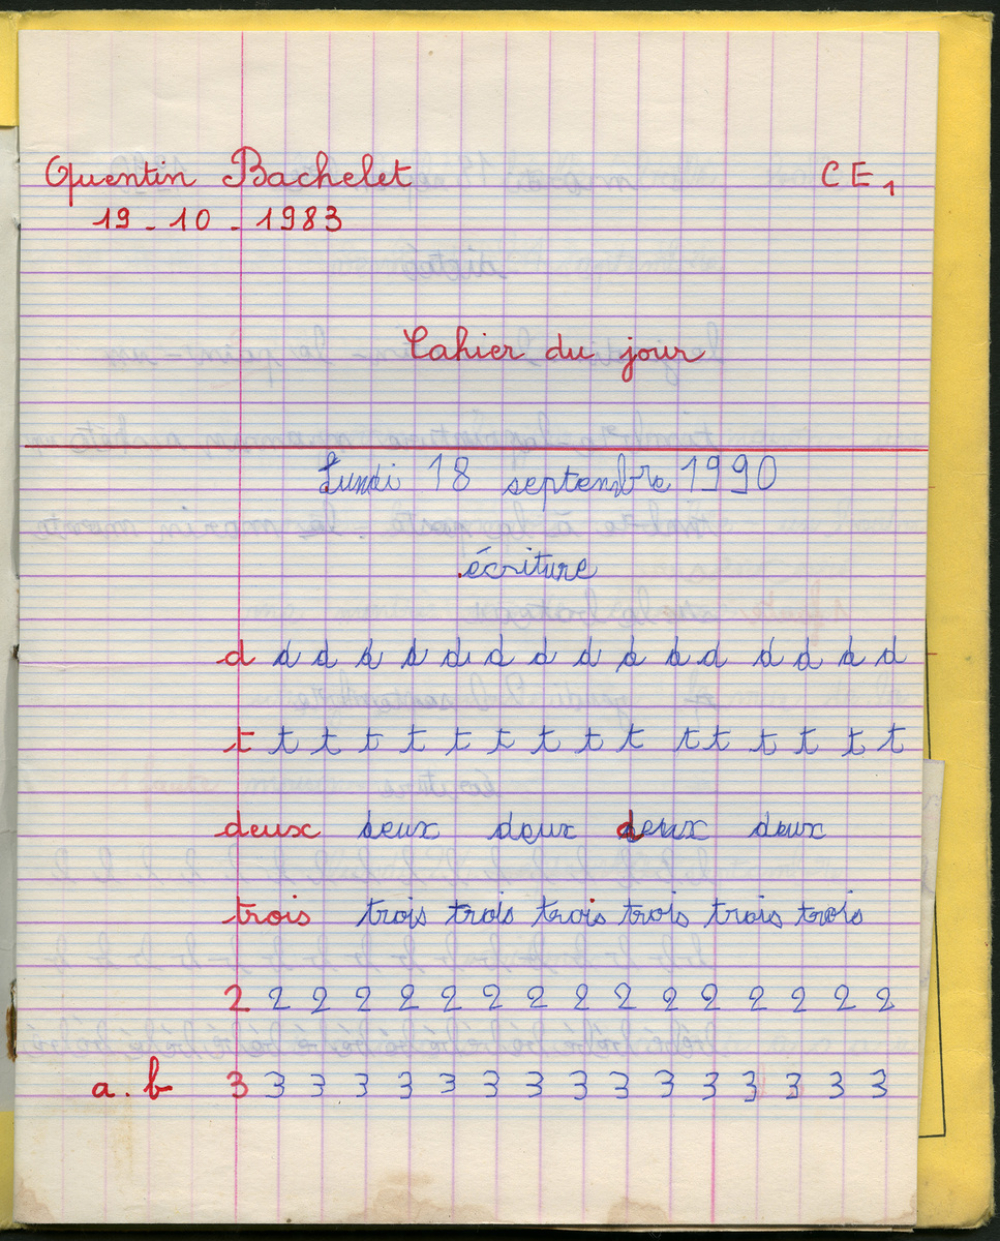 Quentin Bachelet CE1
19-10-1983
Cahier du jour
Lundi 18 septembre 1990
écriture
d d d d d d d d d d d d d d d d
t t t t t t t t t t t t t t t t
deux deux deux deux deux
trois trois trois trois trois trois trois
2 2 2 2 2 2 2 2 2 2 2 2 2 2 2 2
a.b 3 3 3 3 3 3 3 3 3 3 3 3 3 3 3 3